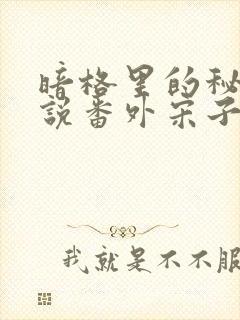 暗格里的秘
说番外宋子
我就是不不服